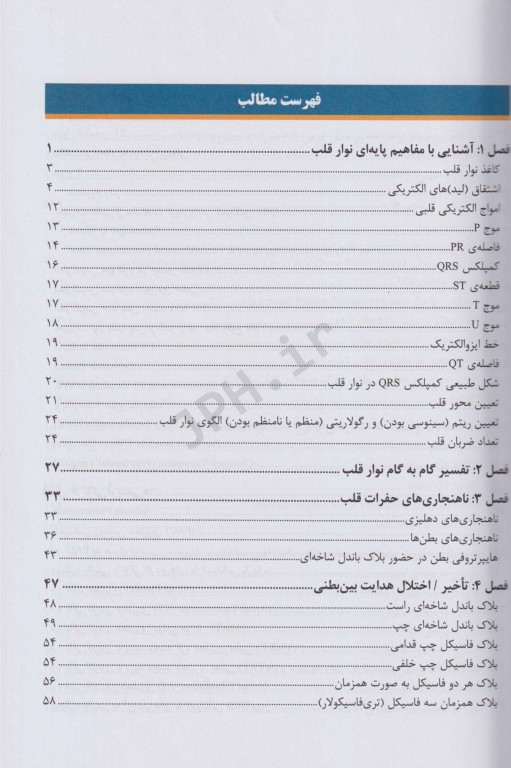 فهرست مطالب
فصل ۱: آشنایی با مفاهیم پایه‌ای نوار قلب ........ ۱
کاغذ نوار قلب ........ ۳
اشتقاق (لید)های الکتریکی ........ ۴
امواج الکتریکی قلبی ........ ۱۲
موج P ........ ۱۳
فاصله‌ی PR ........ ۱۴
کمپلکس QRS ........ ۱۶
قطعه‌ی ST ........ ۱۷
موج T ........ ۱۷
موج U ........ ۱۸
خط ایزوالکتریک ........ ۱۹
فاصله‌ی QT ........ ۱۹
شکل طبیعی کمپلکس QRS در نوار قلب ........ ۲۰
تعیین محور قلب ........ ۲۱
تعیین ریتم (سینوسی بودن) و رگولاریتی (منظم یا نامنظم بودن) الگوی نوار قلب ........ ۲۴
تعداد ضربان قلب ........ ۲۴
فصل ۲: تفسیر گام به گام نوار قلب ........ ۲۷
فصل ۳: ناهنجاری‌های حفرات قلب ........ ۳۳
ناهنجاری‌های دهلیزی ........ ۳۳
ناهنجاری‌های بطن‌ها ........ ۳۶
هایپرتروفی بطن در حضور بلاک باندل شاخه‌ای ........ ۴۳
فصل ۴: تأخیر / اختلال هدایت بین‌بطنی ........ ۴۷
بلاک باندل شاخه‌ای راست ........ ۴۸
بلاک باندل شاخه‌ای چپ ........ ۴۹
بلاک فاسیکل چپ قدامی ........ ۵۴
بلاک فاسیکل چپ خلفی ........ ۵۴
بلاک هر دو فاسیکل به صورت همزمان ........ ۵۶
بلاک همزمان سه فاسیکل (تری‌فاسیکولار) ........ ۵۸
JPH.ir